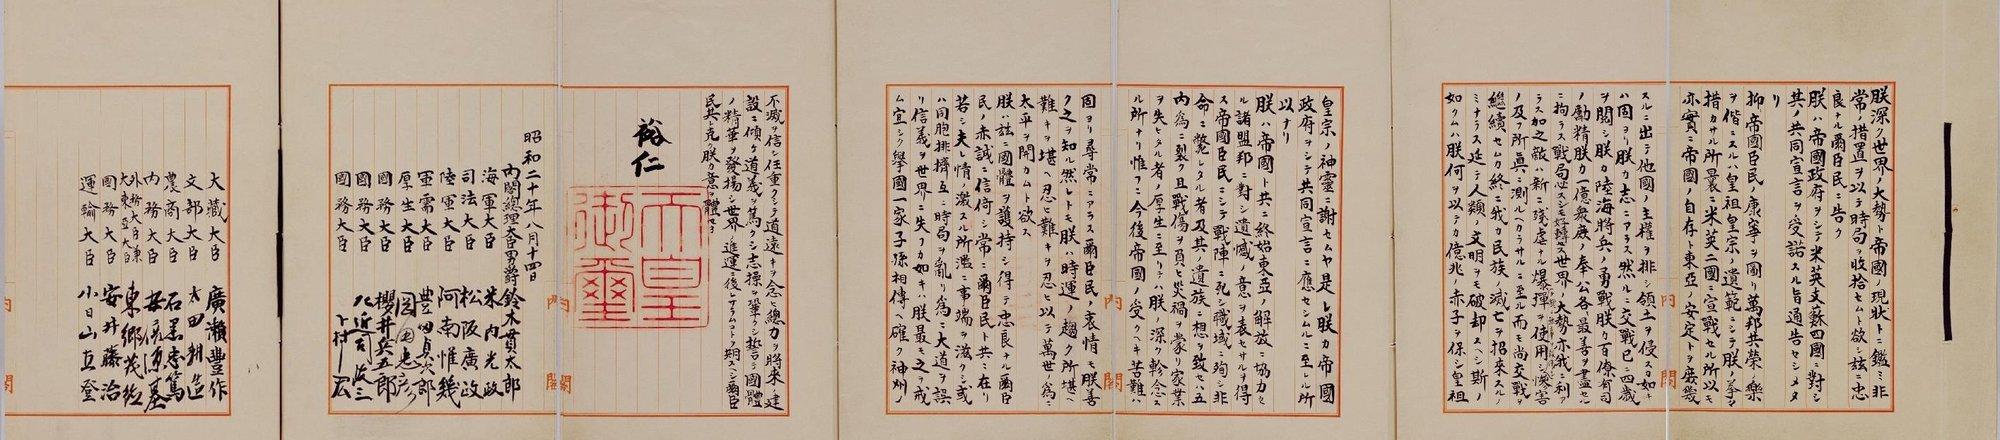 朕深ク世界ノ大勢ト帝國ノ現狀トニ鑑ミ非
常ノ措置ヲ以テ時局ヲ收拾セムト欲シ茲ニ忠
良ナル爾臣民ニ告ク
朕ハ帝國政府ヲシテ米英支蘇四國ニ對シ
其ノ共同宣言ヲ受諾スル旨通告セシメタ
リ
抑帝國臣民ノ康寧ヲ圖リ萬邦共榮ノ樂
ヲ偕ニスルハ皇祖皇宗ノ遺範ニシテ朕ノ拳々
措カサル所曩ニ米英二國ニ宣戰セル所以モ
亦實ニ帝國ノ自存ト東亞ノ安定トヲ庶幾
スルニ出テ他國ノ主權ヲ排シ領土ヲ侵スカ如キ
ハ固ヨリ朕カ志ニアラス然ルニ交戰已ニ四歲
ヲ閱シ朕カ陸海將兵ノ勇戰朕カ百僚有司
ノ勵精朕カ一億衆庶ノ奉公各最善ヲ盡セル
ニ拘ラス戰局必スシモ好轉セス世界ノ大勢亦我ニ利ア
ラス加之敵ハ新ニ殘虐ナル爆彈ヲ使用シ慘害
ノ及フ所眞ニ測ルヘカラサルニ至ル而モ尚交戰ヲ
繼續セムカ終ニ我カ民族ノ滅亡ヲ招來スルノ
ミナラス延テ人類ノ文明ヲモ破却スヘシ斯ノ
如クムハ朕何ヲ以テカ億兆ノ赤子ヲ保シ皇祖
皇宗ノ神靈ニ謝セムヤ是レ朕カ帝國
政府ヲシテ共同宣言ニ應セシムルニ至レル所
以ナリ
朕ハ帝國ト共ニ終始東亞ノ解放ニ協力セ
ル諸盟邦ニ對シ遺憾ノ意ヲ表セサルヲ得
ス帝國臣民ニシテ戰陣ニ死シ職域ニ殉シ非
命ニ斃レタル者及其ノ遺族ニ想ヲ致セハ五
內爲ニ裂ク且戰傷ヲ負ヒ災禍ヲ蒙リ家業
ヲ失ヒタル者ノ厚生ニ至リテハ朕ノ深ク軫念ス
ル所ナリ惟フニ今後帝國ノ受クヘキ苦難ハ
固ヨリ尋常ニアラス爾臣民ノ衷情モ朕善
ク之ヲ知ル然レトモ朕ハ時運ノ趨ク所堪ヘ
難キヲ堪ヘ忍ヒ難キヲ忍ヒ以テ萬世ノ爲ニ
太平ヲ開カムト欲ス
朕ハ茲ニ國體ヲ護持シ得テ忠良ナル爾臣
民ノ赤誠ニ信倚シ常ニ爾臣民ト共ニ在リ
若シ夫レ情ノ激スル所濫ニ事端ヲ滋クシ或
ハ同胞排擠互ニ時局ヲ亂リ爲ニ大道ヲ誤
リ信義ヲ世界ニ失フカ如キハ朕最モ之ヲ戒
ム宜シク擧國一家子孫相傳ヘ確ク神州ノ
不滅ヲ信シ任重クシテ道遠キヲ念ヒ總力ヲ將來ノ建
設ニ傾ケ道義ヲ篤クシ志操ヲ鞏クシ誓テ國體
ノ精華ヲ發揚シ世界ノ進運ニ後レサラムコトヲ期スヘシ爾臣
民其レ克ク朕カ意ヲ體セヨ
裕仁
天皇
御璽
昭和二十年八月十四日
內閣總理大臣男爵 鈴木貫太郎
海軍大臣 米內光政
司法大臣 松阪廣政
陸軍大臣 阿南惟幾
軍需大臣 豊田貞次郎
厚生大臣 岡田忠彦
國務大臣 櫻井兵五郎
國務大臣 左近司政三
國務大臣 下村宏
大藏大臣 廣瀨豐作
文部大臣 太田耕造
農商大臣 石黑忠篤
內務大臣 安倍源基
外務大臣兼大東亞大臣 東鄕茂德
國務大臣 安井藤治
運輸大臣 小日山直登
內閣
內閣
內閣
內閣